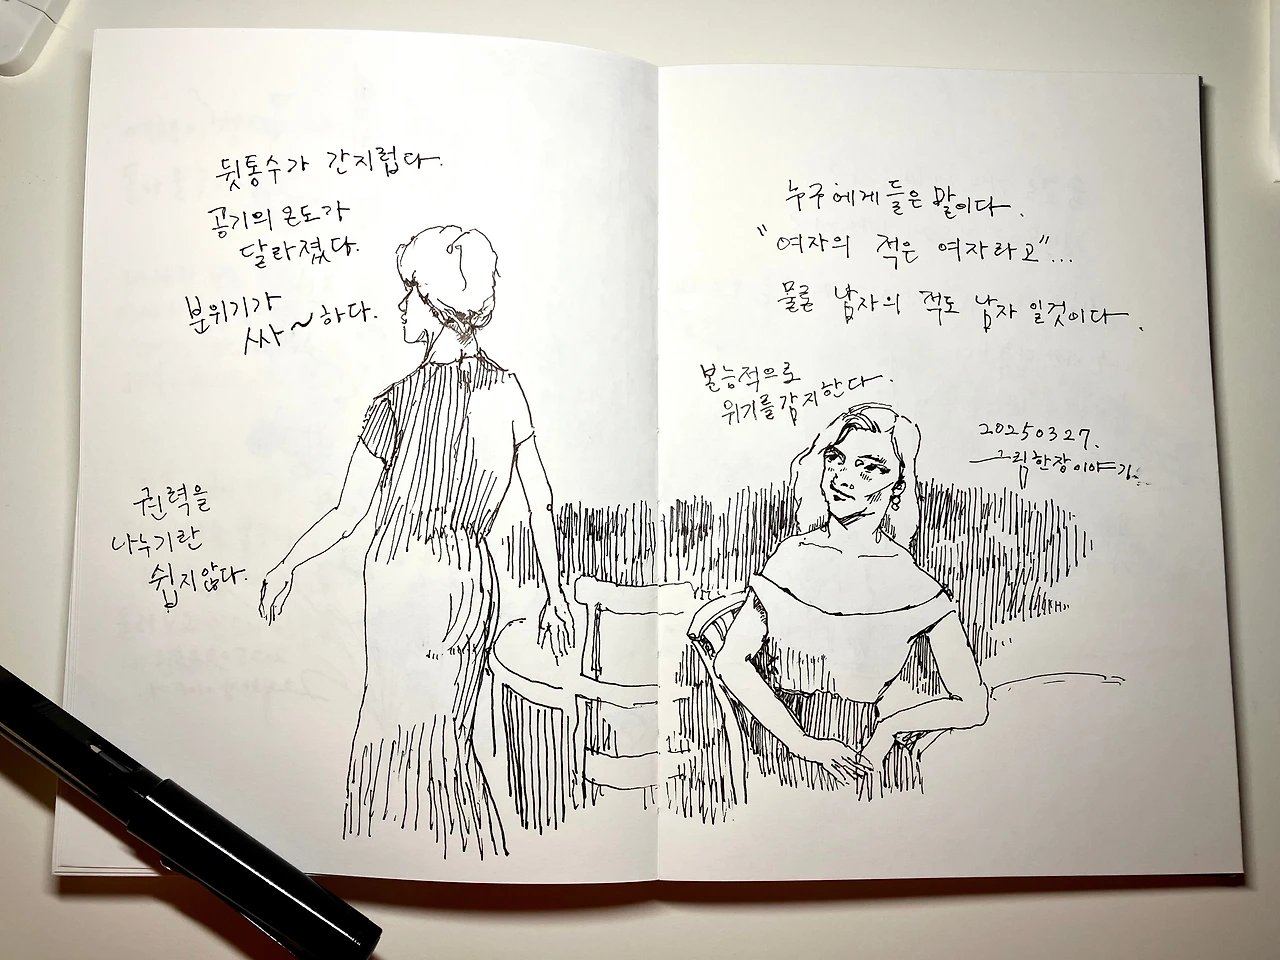 뒷통수가 간지럽다.
공기의 온도가
달라졌다.
분위기가
싸~하다.
권력을
나누기란
쉽지않다.
누구에게 들은 말이다.
"여자의 적은 여자라고"...
물론 남자의 적도 남자 일것이다.
본능적으로
위기를 감지한다.
20250327.
그림한장이야기.